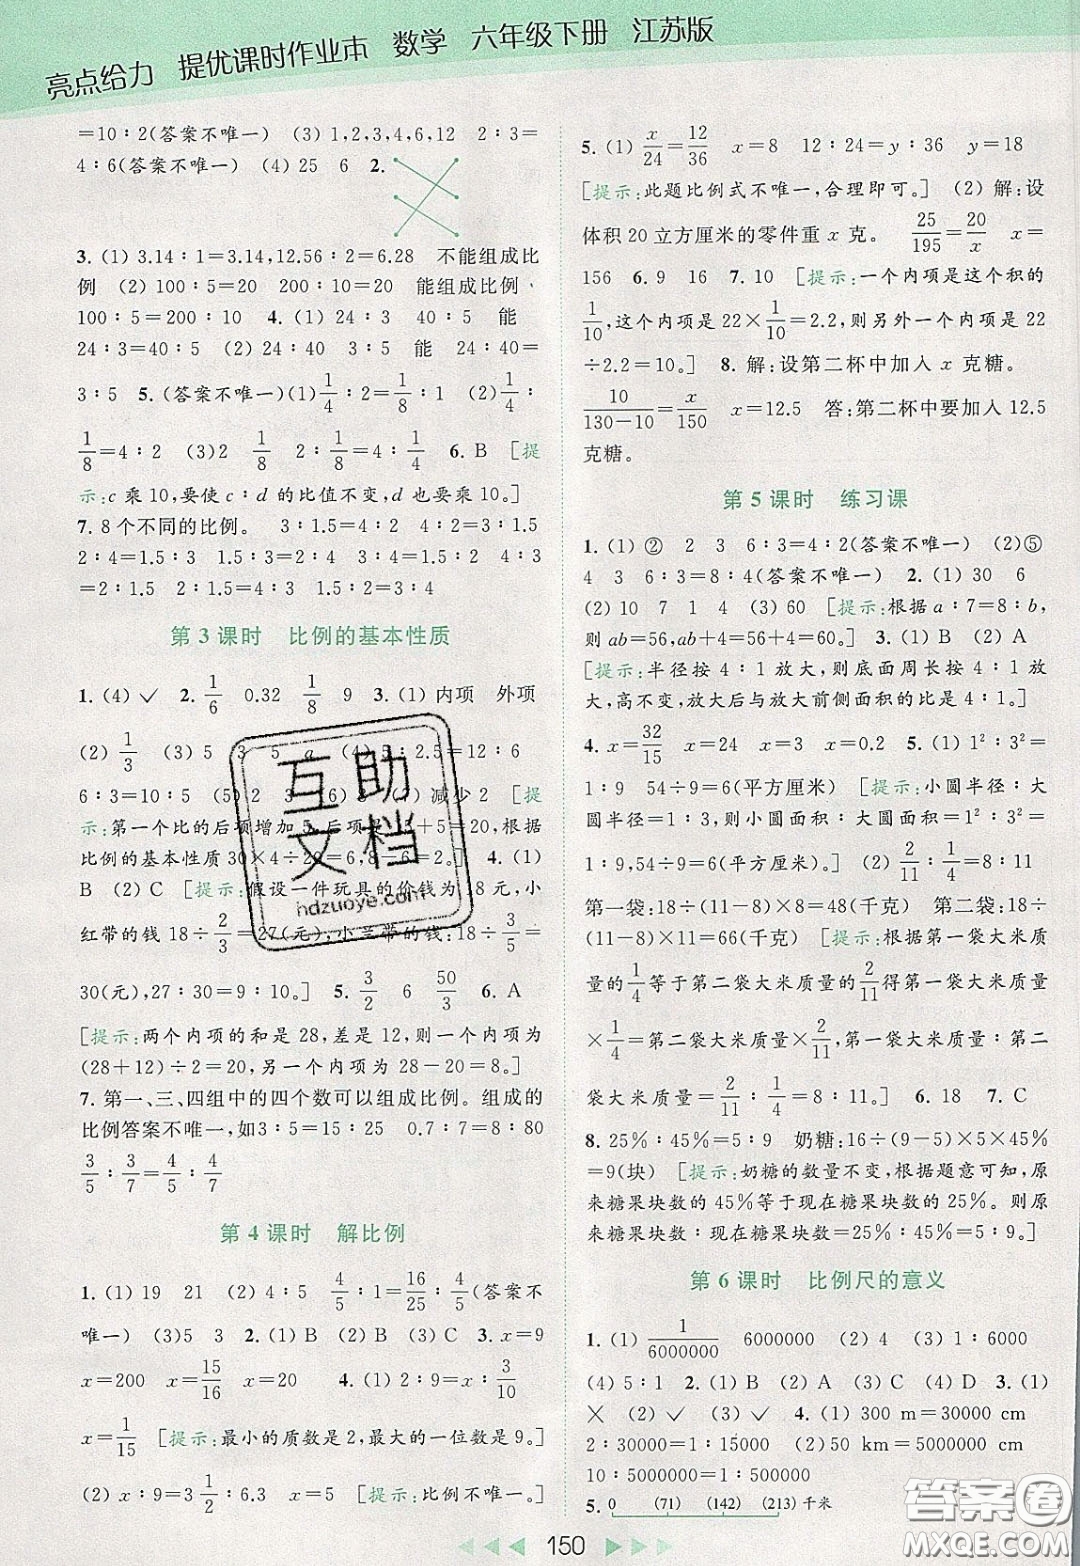 亮点给力 提优课时作业本 数学 六年级下册 江苏版
=10∶2(答案不唯一) (3) 1,2,3,4,6,12 2∶3=
4∶6(答案不唯一) (4) 25 6 2.
3. (1) 3.14∶1=3.14,12.56∶2=6.28 不能组成比
例 (2) 100∶5=20 200∶10=20 能组成比例
100∶5=200∶10 4. (1) 24∶3 40∶5 能
24∶3=40∶5 (2) 24∶40 3∶5 能 24∶40=
3∶5 5. (答案不唯一)(1) 1/4∶2=1/8∶1 (2) 1/4∶
1/8=4∶2 (3)2 1/8 2∶1/8=4∶1/4 6. B [提
示:c 乘 10,要使 c∶d 的比值不变,d 也要乘 10。]
7. 8 个不同的比例。 3∶1.5=4∶2 4∶2=3∶1.5
2∶4=1.5∶3 1.5∶3=2∶4 1.5∶2=3∶4 4∶3
=2∶1.5 2∶1.5=4∶3 3∶4=1.5∶2
第 3 课时 比例的基本性质
1. (4) ✓ 2. 1/6 0.32 1/8 9 3. (1) 内项 外项
(2) 1/3 (3) 5 3 5 a (4) ∶2.5=12∶6
6∶3=10∶5 (5) 2 3 (6) (1) 减少 2 [提
示:第一个比的后项增加 5,后项是 +5=20,根据
比例的基本性质 30×4÷20=6,8-6=2。] 4. (1)
B (2) C [提示:假设一件玩具的价钱为 18 元,小
红带的钱 18÷2/3=27(元),小兰带的钱:18÷3/5=
30(元),27∶30=9∶10。] 5. 3/2 6 50/3 6. A
[提示:两个内项的和是 28,差是 12,则一个内项为
(28+12)÷2=20,另一个内项为 28-20=8。]
7. 第一、三、四组中的四个数可以组成比例。组成的
比例答案不唯一,如3∶5=15∶25 0.7∶7=8∶80
3/5∶3/7=4/5∶4/7
第 4 课时 解比例
1. (1) 19 21 (2) 4∶5 4/5∶1=16/25∶4/5(答案不
唯一) (3)5 3 2. (1) B (2) B (3) C 3. x=9
x=200 x=15/16 x=20 4. (1) 2∶9=x∶3/10
x=1/15 [提示:最小的质数是 2,最大的一位数是 9。]
(2) x∶9=3 1/2∶6.3 x=5 [提示:比例不唯一。]
5. (1) x/24=12/36 x=8 12∶24=y∶36 y=18
[提示:此题比例式不唯一,合理即可。] (2) 解:设
体积 20 立方厘米的零件重 x 克。 25/195=20/x x=
156 6. 9 16 7. 10 [提示:一个内项是这个积的
1/10,这个内项是 22×1/10=2.2,则另外一个内项是 22
÷2.2=10。] 8. 解:设第二杯中加入 x 克糖。
10/(130-10)=x/150 x=12.5 答:第二杯中要加入 12.5
克糖。
第 5 课时 练习课
1. (1) ② 2 3 6∶3=4∶2(答案不唯一) (2)⑤
4 3 6∶3=8∶4(答案不唯一) 2. (1) 30 6
(2) 10 7 1 (3) 60 [提示:根据 a∶7=8∶b,
则 ab=56,ab+4=56+4=60。] 3. (1) B (2) A
[提示:半径按 4∶1 放大,则底面周长按 4∶1 放
大,高不变,放大后与放大前侧面积的比是 4∶1。]
4. x=32/15 x=24 x=3 x=0.2 5. (1) 1²∶3²=
1∶9 54÷9=6(平方厘米) [提示:小圆半径∶大
圆半径=1∶3,则小圆面积∶大圆面积=1²∶3²=
1∶9,54÷9=6(平方厘米)。] (2) 2/11∶1/4=8∶11
第一袋:18÷(11-8)×8=48(千克) 第二袋:18÷
(11-8)×11=66(千克) [提示:根据第一袋大米质
量的1/4等于第二袋大米质量的2/11得第一袋大米质量
×1/4=第二袋大米质量×2/11,第一袋大米质量∶第二
袋大米质量=2/11∶1/4=8∶11。] 6. 18 7. C
8. 25%∶45%=5∶9 奶糖:16÷(9-5)×5×45%
=9(块) [提示:奶糖的数量不变,根据题意可知,原
来糖果块数的 45%等于现在糖果块数的 25%。则原
来糖果块数∶现在糖果块数=25%∶45%=5∶9。]
第 6 课时 比例尺的意义
1. (1) 1/6000000 6000000 (2) 4 (3) 1∶6000
(4) 5∶1 2. (1) B (2) A (3) C (4) D 3. (1)
× (2) ✓ (3) ✓ 4. (1) 300 m=30000 cm
2∶30000=1∶15000 (2) 50 km=5000000 cm
10∶5000000=1∶500000
5. 0 (71) (142) (213)千米
互助文档
hdzuoye.com
答案圈
MXQE.COM
150